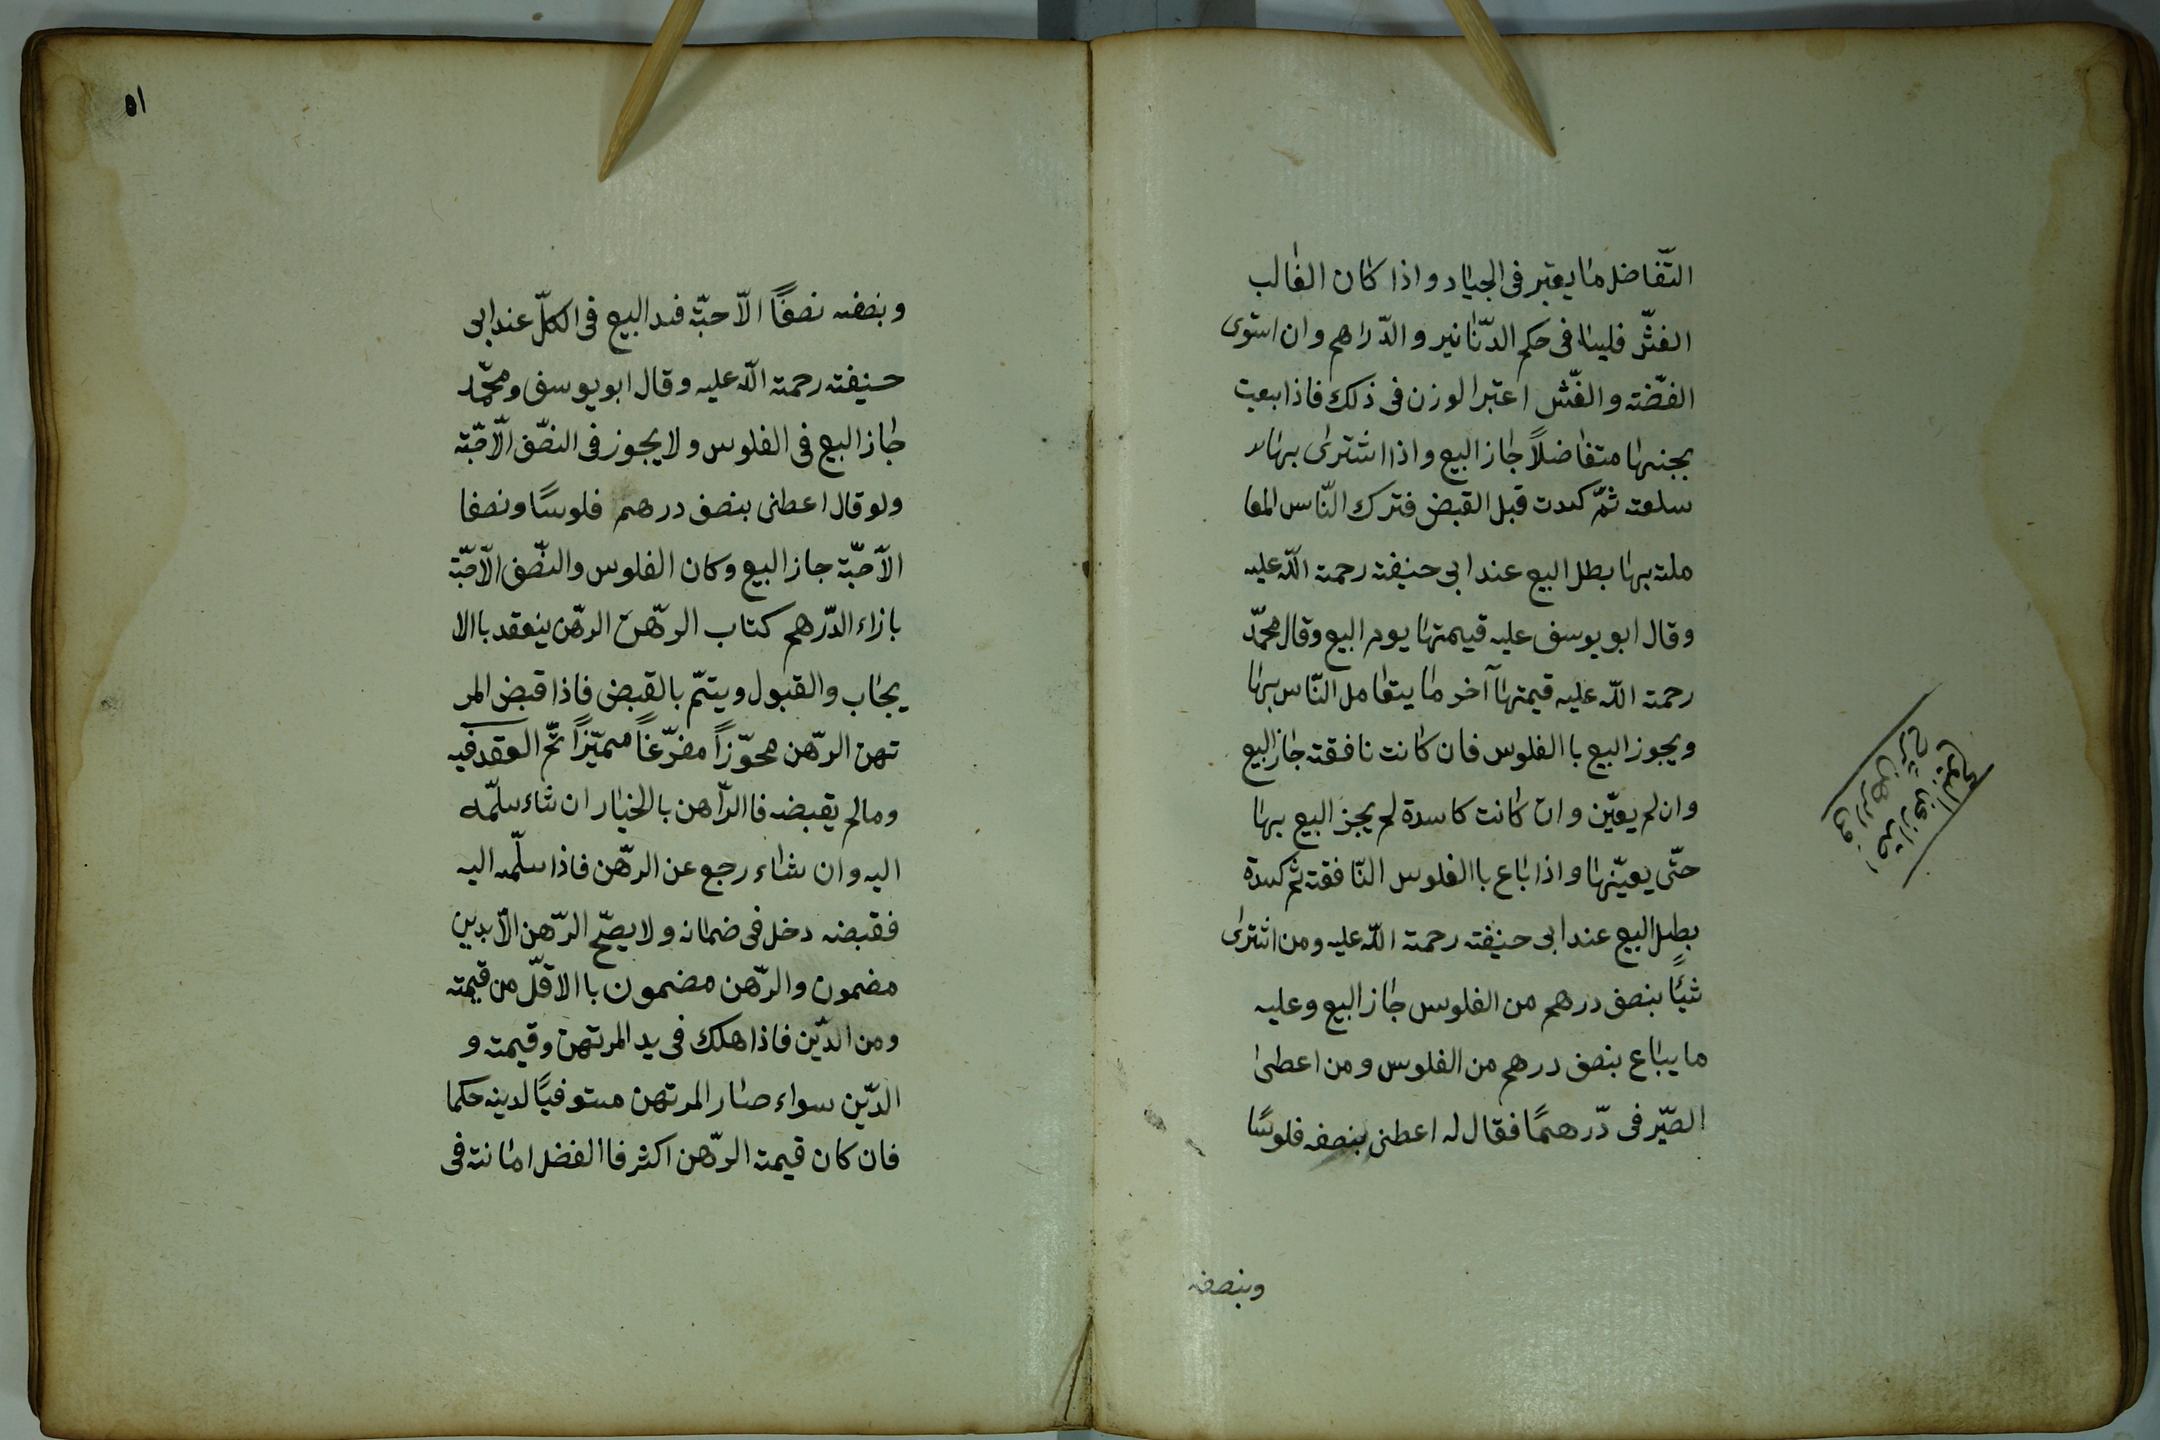 التّفاضل ما يعتبر فى الجياد واذا كان الغالب
الغشّ فليسا فى حكم الدّنانير والدّراهم وان استوى
الفضّته والغّش اعتبر الوزن فى ذلك فاذا بيعت
بجنسها متفاضلاً جاز البيع واذا اشترى بها
سلعته ثمّ كسدت قبل القبض فترك النّاس المعا
ملته بها بطل البيع عند ابى حنيفته رحمته اللّه عليه
وقال ابو يوسف عليه قيمتها يوم البيع وقال محمّد
رحمته اللّه عليه قيمتها آخر ما يتعامل النّاس بها
ويجوز البيع باالفلوس فان كانت نافقته جاز البيع
وان لم يعيّن وان كانت كاسدة لم يجز البيع بها
حتّى يعيّنها واذا باع باالفلوس النّافقته ثم كسدة
بطل البيع عند ابى حنيفته رحمته اللّه عليه ومن اشترى
شيئًا بنصف درهم من الفلوس جاز البيع وعليه
ما يباع بنصف درهم من الفلوس ومن اعطى
الصّيرفى دّرهمًا فقال له اعطنى بنصفه فلوسًا
وبنصفه
٥١
وبنصفه نصفًا الّا حبّة فسد البيع فى الكلّ عند ابى
حنيفته رحمته اللّه عليه وقال ابو يوسف ومحمّد
جاز البيع فى الفلوس ولا يجوز فى النصّف الّا حبّة
ولو قال اعطنى بنصف درهم فلوسًا ونصفا
الّا حبّة جاز البيع وكان الفلوس والنصّف الّا حبّة
بازاء الدّرهم كتاب الرهّن الرهّن ينعقد باالا
يجاب والقبول ويتمّ بالقبض فاذا قبض المر
تهن الرهّن محوّزاً مفرّغاً مميّزاً تّم العقد فيه
وما لم يقبضه فاالرّاهن بالخيار ان شاء سلّمه
اليه وان شاء رجع عن الرهّن فاذا سلّمه اليه
فقبضه دخل فى ضمانه ولا يصّح الرّهن الّا بدين
مضمون والرّهن مضمون باالاقلّ من قيمته
ومن الدّين فاذا هلك فى يد المرتهن وقيمته و
الدّين سواء صار المرتهن مستوفيًا لدينه حكما
فان كان قيمته الرّهن اكثر فاالفضل امانته فى